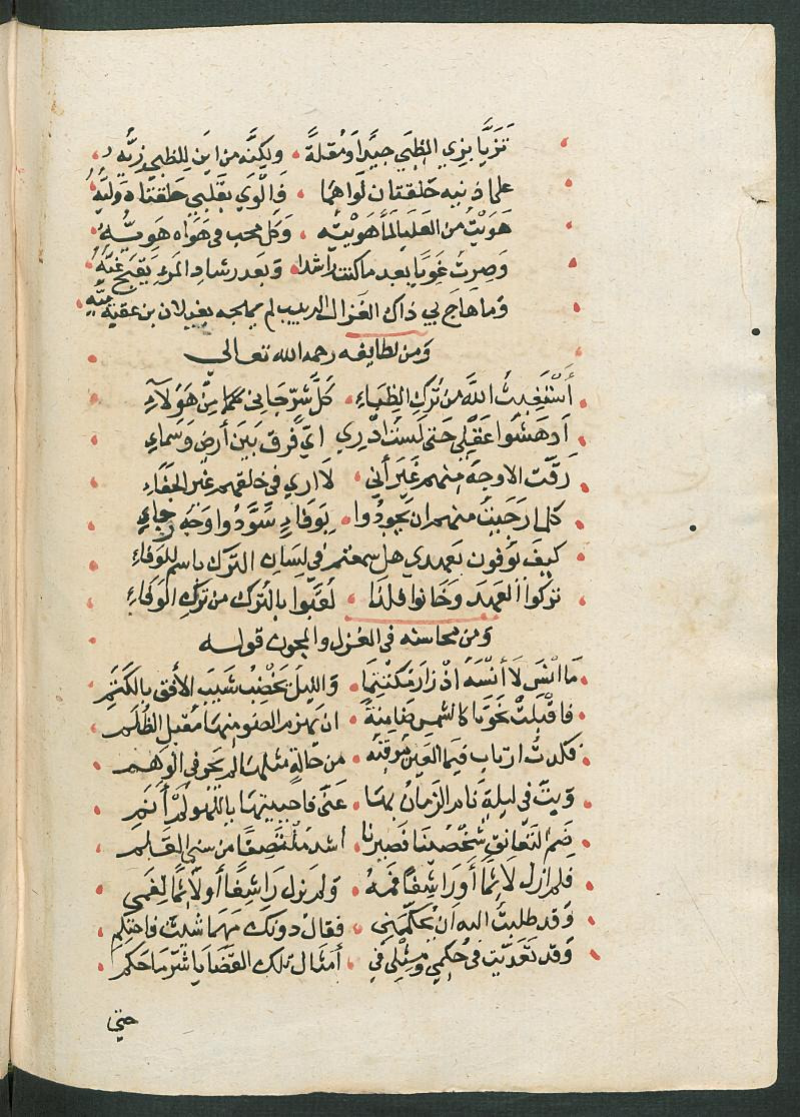 تَزَيَّا بزي الظبي جيدًا ومُقلةً ولكنه من اين للظبي زيُّه
على اذنيه حلقتان لواهما فالوي بقلبي حلقتاه وليُّه
هَوَيْتُ من العليا لمّا هويتُه وكل محب في هواه هويُّه
وصرتُ غويًا بعد ما كنت راشدا وبعد رشاد المرءِ يقبح غيُّه
وما هاج بي ذاك الغزال الربيب لم يهجه بغيلان بن عقبة ميُّه
ومن لطايفه رحمه الله تعالى
أستغيثُ اللهَ من تُركِ الظِباءِ كلُّ شرٍّ جاني مِن هؤلاءِ
أدهشوا عقلي حتى لستُ ادري ايّ فرق بين أرضٍ وسماءِ
رقّت الاوجهُ منهم غيرَ أني لا ارى في خلقهم غير الجفاءِ
كلما رجيتُ منهم ان يجودوا بوفاءٍ سوَّدوا وَجْه رجايِ
كيف يوفون بعهدي هل سمعتم في لسان الترك باسم للوفاءِ
تركوا العهدَ وخانوا فلذا لُقّبوا بالتُرك من تركِ الوفاءِ
ومن محاسنه في الغزل والمجون قوله
ما انسَ لا أنسَهُ اذ زار مكتتِمًا والليل يخضِبُ شيبَ الأفق بالكَتَمِ
فاقبلتْ نحونا كالشمس ضامنةً ان يهزم الضو منها مُقبل الظُلَم
فكدتُ ارتاب فيما العين مُوقنه من حالةٍ مثلها لم يجرِ في الوهم
وبتّ في ليلةٍ نام الزمان بها عنّى فاحييتها باللهو لم أنَمِ
ضم التعانق شخصينا فصيرنا اشد ملتصقًا من سني القلم
فلم ازل لاثمًا أو راشفًا فمَهُ ولم يزل راشفًا أو لاثمًا لفمي
وقد طلبتُ اليه ان يحكّمَني فقال دونك مهما شئتَ فاحتكم
وقد تعدّيت في حكمي ومِثْلي في أمثال تلك القضايا شرّ ما حكم
حتى